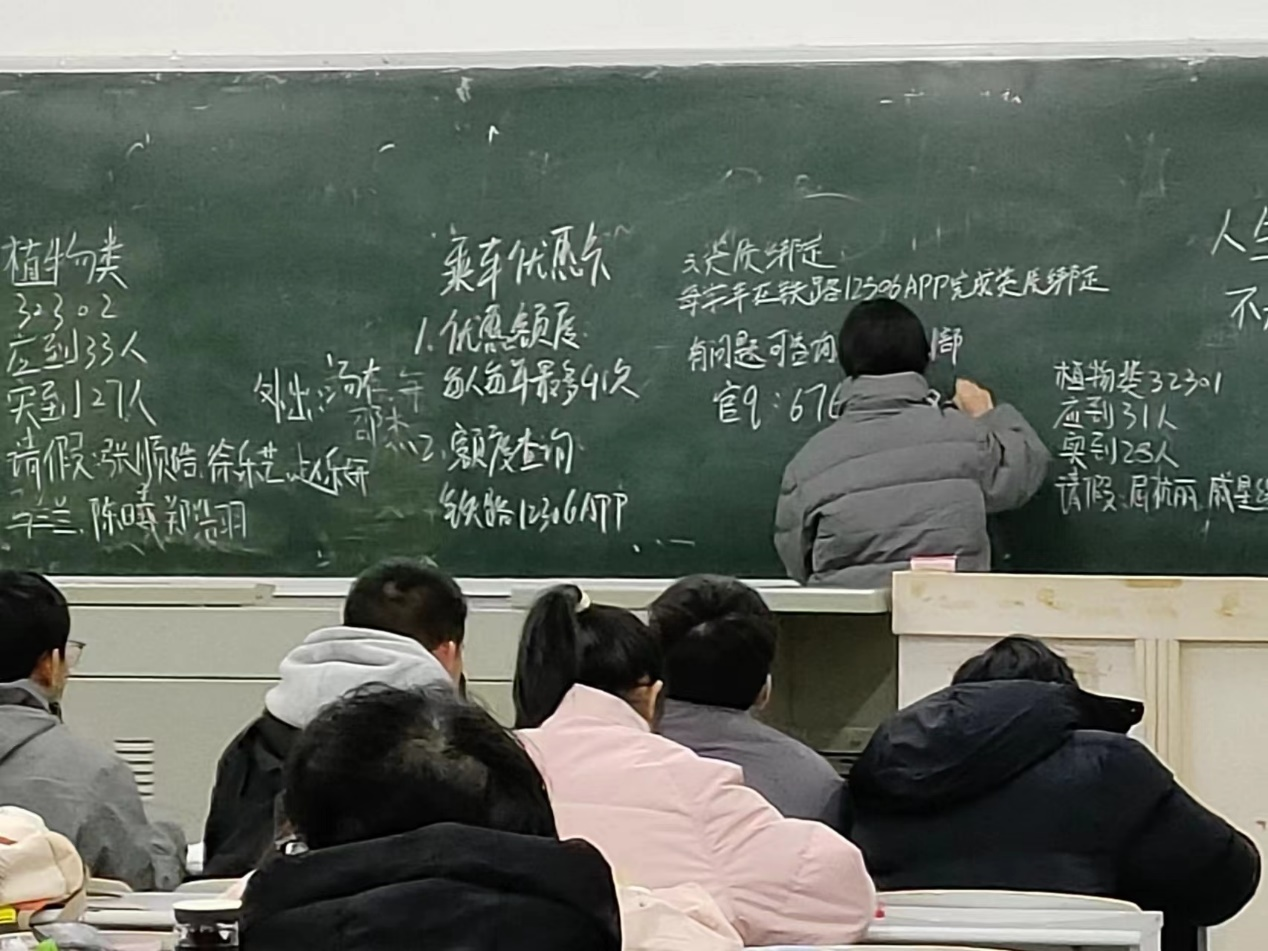 植物类
32302
应到33人
实到27人
请假:张顺皓.徐乐艺.
陈曦.郑浩羽
外出:
乘车优惠卡
1.优惠额度
每人每年最多4次
2.额度查询
铁路12306APP
3.资质绑定
每学年在铁路12306APP完成资质绑定
有问题可咨询 部
官q:676
植物类32301
应到31人
实到25人
请假:
人生
不